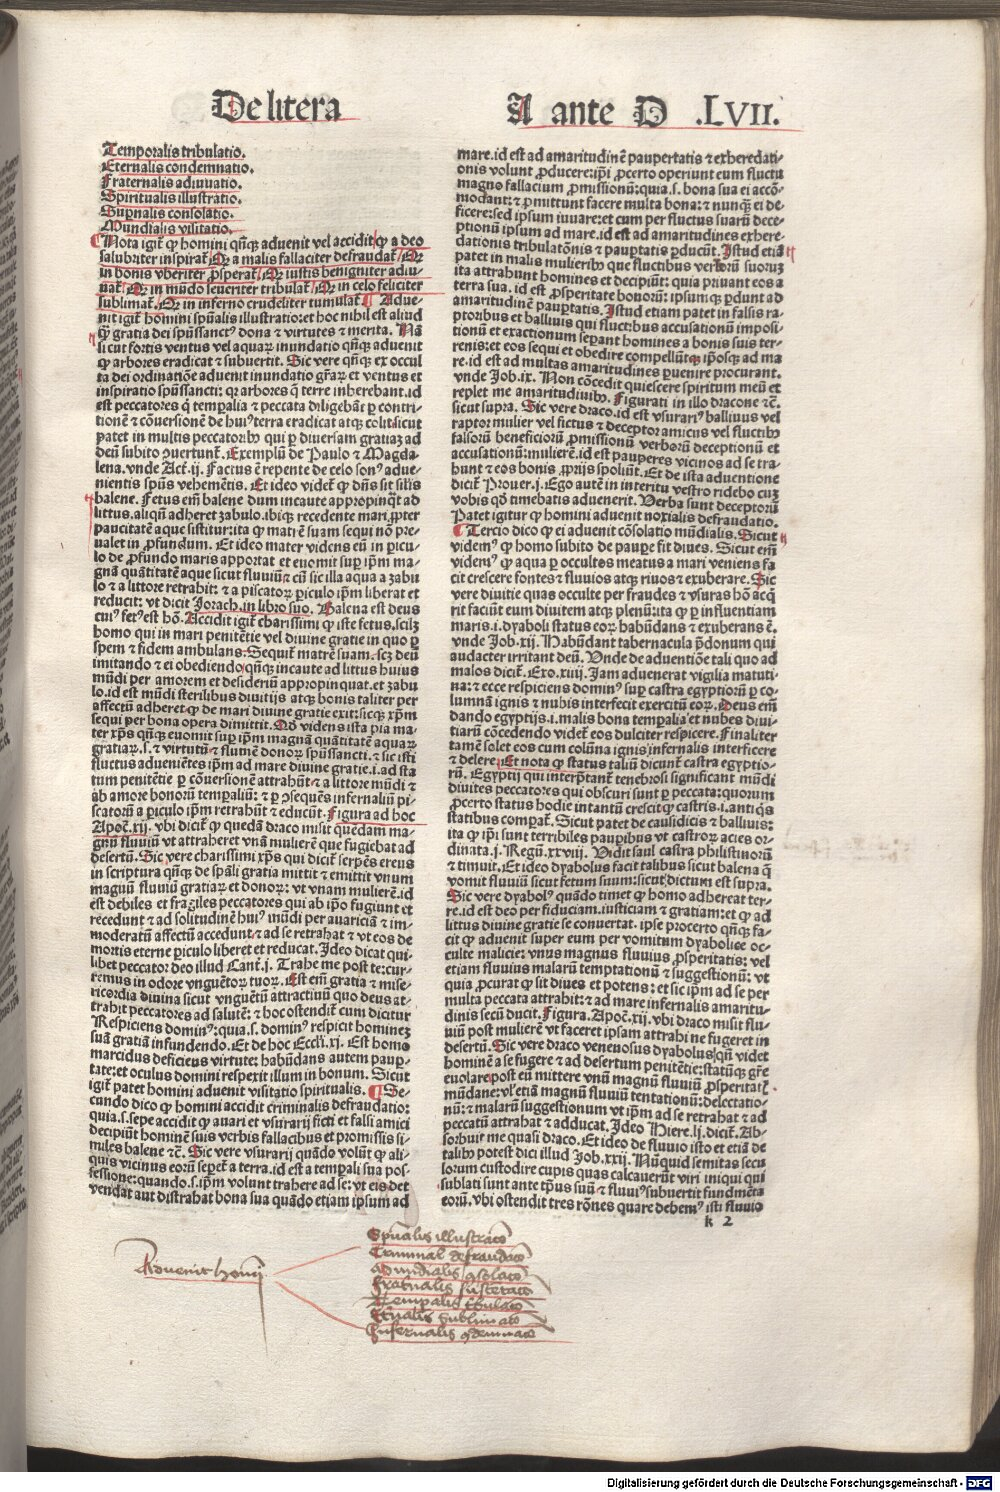 De litera A ante D .LVII.
Temporalis tribulatio.
Eternalis condemnatio.
Fraternalis adiuuatio.
Spiritualis illustratio.
Supnalis consolatio.
Mundialis visitatio.
¶ Nota igit͛ ꝙ homini qñqꝫ aduenit vel accidit ꝙ a deo
salubriter inspirat͛ Qꝛ a malis fallaciter defraudat͛ Qꝛ
in bonis vberiter ꝓsperat͛ Qꝛ iustis benigniter adiu
uat͛ Qꝛ in mūdo seueriter tribulat͛ Qꝛ in celo feliciter
sublimat͛ Qꝛ in inferno crudeliter tumulat͛ ¶ Adue-
nit igit͛ homini spūalis illustratio: et hoc nihil est aliud
ꝙ̄ gratia dei spūssanctꝰ dona ⁊ virtutes ⁊ merita. Nā
sicut fortis ventus vel aquaꝝ inundatio qñqꝫ aduenit
ꝙ arbores eradicat ⁊ subuertit. Sic vere qñqꝫ ex occul
ta dei ordinatiōe aduenit inundatio gr̄aꝝ et ventus et
inspiratio spūssancti: qꝛ arbores q̄ terre inherebant. id
est peccatores q̄ temꝑalia ⁊ peccata diligebāt ꝑ contri-
tionē ⁊ cōuersionē de huiꝰ terra eradicat atqꝫ colit. sicut
patet in multis peccatoribꝰ qui ꝑ diuersam gratiaꝫ ad
deū subito ꝯuertunt͛. Exemplū de Paulo ⁊ Magda-
lena. vnde Act. ij. Factus ē repente de celo sonꝰ adue-
nientis spūs vehemētis. Et ideo videt͛ ꝙ dn̄s sit silis
balene. Fetus em̄ balene dum incaute appropinq̄t ad
littus. aliqn̄ adheret zabulo. ibiqꝫ recedente mari ꝓpter
paucitatē aque sistitur: ita ꝙ matrē suam sequi nō pre-
ualet in ꝓfundum. Et ideo mater videns eū in ꝑicu-
lo de ꝓfundo maris apportat et euomit suꝑ ip̄m ma-
gnā quātitatē aque sicut fluuiū ⁊ cū sic illa aqua a zabu
lo ⁊ a littore retrahit: ⁊ a piscatoꝝ ꝑiculo ip̄m liberat et
reducit: vt dicit Jorach. in libro suo. Balena est deus
cuiꝰ fetꝰ est hō. Accidit igit͛ charissimi ꝙ iste fetus. scilꝫ
homo qui in mari penitētie vel diuine gratie in quo ꝑ
spem ⁊ fidem ambulans. Sequit͛ matrē suam. scꝫ deū
imitando ⁊ ei obediendo qñqꝫ incaute ad littus huius
mūdi per amorem et desideriū appropinquat. et zabu
lo. id est mūdi sterilibus diuitijs atqꝫ bonis taliter per
affectū adheret ꝙ de mari diuine gratie exit: sicqꝫ xp̄m
sequi per bona opera dimittit. Qd̄ videns ista pia ma-
ter xp̄s qñqꝫ euomit suꝑ ip̄m magnā quātitatē aquaꝝ
gratiaꝝ. s. ⁊ virtutū ⁊ flumē donoꝝ spūssancti. ⁊ sic isti
fluctus aduenientes ip̄m ad mare diuine gratie. i. ad sta
tum penitētie ꝑ cōuersionē attrahūt. ⁊ a littore mūdi ⁊
ab amore bonorū temꝑaliū: ⁊ ꝑ ꝯsequēs infernaliū pi-
scatorū a ꝑiculo ip̄m retrahūt ⁊ educūt. Figura ad hoc
Apoc̄. xij. vbi dicit͛ ꝙ quedā draco misit quēdam ma-
gnū fluuiū vt attraheret vnā mulierē que fugiebat ad
desertū. Sic vere charissimi xp̄s qui dicit͛ serpēs ereus
in scriptura qñqꝫ de spāli gratia mittit ⁊ emittit vnum
magnū fluuiū gratiaꝝ et donoꝝ: vt vnam mulierē. id
est debiles et fragiles peccatores qui ab ip̄o fugiunt et
recedunt ⁊ ad solitudinē huiꝰ mūdi per auariciā ⁊ im-
moderatū affectū accedunt. ⁊ ad se retrahat ⁊ vt eos de
mortis eterne ꝑiculo liberet et reducat. Ideo dicat qui-
libet peccator deo illud Cant͛. j. Trahe me post te: cur-
remus in odore vnguētoꝝ tuoꝝ. Est em̄ gratia ⁊ mise-
ricordia diuina sicut vnguētū attractiuū quo deus at-
trahit peccatores ad salutē: ⁊ hoc ostendit͛ cum dicitur
Respiciens dominꝰ: quia. s. dominꝰ respicit homineꝫ
suā gratiā infundendo. Et de hoc Eccli. xj. Est homo
marcidus deficieus virtute: habūdans autem pauꝑ-
tate: et oculus domini respexit illum in bonum. Sicut
igit͛ patet homini aduenit visitatio spiritualis. ¶ Se-
cundo dico ꝙ homini accidit criminalis defraudatio:
quia. s. sepe accidit ꝙ auari et vsurarij ficti et falsi amici
decipiūt hominē suis verbis fallacibus et promissis si-
miles balene ⁊c̄. Sic vere vsurarij quādo volūt ꝙ ali-
quis vicinus eorū seꝑet͛ a terra. id est a temꝑali sua pos-
sessione: quando. s. ip̄m volunt trahere ad se: vt eis det
vendat aut distrahat bona sua quādo etiam ipsum ad
mare. id est ad amaritudinē paupertatis ⁊ exheredati-
onis volunt ꝓducere: ip̄i ꝓcerto operiunt eum fluctu
magno fallacium ꝓmissionū: quia. s. bona sua ei accō-
modant: ⁊ ꝓmittunt facere multa bona: ⁊ nunqꝫ ei de-
ficere: sed ipsum iuuare: et cum per fluctus suarū dece-
ptionū ipsum ad mare. id est ad amaritudines exhere-
dationis tribulatōnis ⁊ pauꝑtatis ꝑducūt. Istud etiā
patet in malis mulieribꝰ que fluctibus verborū suoruꝫ
ita attrahunt homines et decipiūt: quia priuant eos a
terra sua. id est ꝓsperitate bonorū: ipsumqꝫ ꝑdunt ad
amaritudinē pauꝑtatis. Istud etiam patet in falsis ra-
ptoribus et balliuis qui fluctibus accusationū imposi-
tionū et exactionum seꝑant homines a bonis suis ter-
renis: et eos sequi et obedire compellūt: ipōsqꝫ ad ma
re. id est ad multas amaritudines ꝑuenire procurant.
vnde Job. ix. Non cōcedit quiescere spiritum meū et
replet me amaritudinibꝰ. Figurati in illo dracone ⁊c̄.
sicut supra. Sic vere draco. id est vsurariꝰ balliuus vel
raptor mulier vel fictus ⁊ deceptor amicus vel fluctibꝰ
falsorū beneficiorū ꝓmissionū verborū deceptionū et
accusationū: mulierē. id est pauperes vicinos ad se tra-
hunt ⁊ eos bonis ꝓprijs spoliūt. Et de ista aduentione
dicit͛ Prouer. j. Ego autē in interitu vestro ridebo cuꝫ
vobis qd̄ timebatis aduenerit. Verba sunt deceptorū
Patet igitur ꝙ homini aduenit noxialis defraudatio.
¶ Tercio dico ꝙ ei aduenit cōsolatio mūdialis. Sicut
videmꝰ ꝙ homo subito de pauꝑe fit diues. Sicut em̄
videmꝰ ꝙ aqua ꝑ occultos meatus a mari veniens fa
cit crescere fontes ⁊ fluuios atqꝫ riuos ⁊ exuberare. Sic
vere diuitie quas occulte per fraudes ⁊ vsuras hō acq̄
rit faciūt eum diuitem atqꝫ plenū: ita ꝙ per influentiam
maris. i. dyaboli status eoꝝ habūdans ⁊ exuberans ē.
vnde Job. xij. Habūdant tabernacula p̄donum qui
audacter irritant deū. Unde de aduentiōe tali quo ad
malos dicit͛. Exo. xiiij. Jam aduenerat vigilia matuti-
na: ⁊ ecce respiciens dominꝰ suꝑ castra egyptiorū ꝑ co-
lumnā ignis ⁊ nubis interfecit exercitū eoꝝ. Deus em̄
dando egyptijs. i. malis bona temꝑalia et nubes diui-
tiarū cōcedendo videt͛ eos dulciter respicere. Finaliter
tamē solet eos cum colūna ignis infernalis interficere
⁊ delere. Et nota ꝙ status taliū dicunt͛ castra egyptio-
rū. Egyptij qui interp̄tant͛ tenebrosi significant mūdi
diuites peccatores qui obscuri sunt ꝑ peccata: quorum
ꝓcerto status hodie intantū crescit ꝙ castris. i. antiq̄s
statibus comꝑat͛. Sicut patet de causidicis ⁊ balliuis:
ita ꝙ ip̄i sunt terribiles pauꝑibus vt castroꝝ acies or-
dinata. j. Regū. xxviij. Vidit saul castra philistinorū
⁊ timuit. Et ideo dyabolus facit talibus sicut balena q̄
vomit fluuiū sicut fetum suum: sicut dictum est supra.
Sic vere dyabolꝰ quādo timet ꝙ homo adhereat ter-
re. id est deo per fiduciam. iusticiam ⁊ gratiam: et ꝙ ad
littus diuine gratie se conuertat. ipse procerto qñqꝫ fa-
cit ꝙ aduenit super eum per vomitum dyabolice oc-
culte malicie: vnus magnus fluuius ꝓsperitatis: vel
etiam fluuius malarū temptationū ⁊ suggestionū: vt
quia ꝓcurat ꝙ sit diues et potens: et sic ip̄m ad se per
multa peccata attrahit: ⁊ ad mare infernalis amaritu-
dinis secū ducit. Figura. Apoc̄. xij. vbi draco misit flu-
uiū post mulierē vt faceret ipsam attrahi ne fugeret in
desertū. Sic vere draco venenosus dyabolus qū videt
hominē a se fugere ⁊ ad desertum penitētie: statūqꝫ gr̄e
euolare: post eū mittere vnū magnū fluuiū ꝓsperitatē
mūdane: vl̓ etiā magnū fluuiū tentationū: delectatio-
nū: ⁊ malarū suggestionum vt ip̄m ad se retrahat ⁊ ad
peccatū attrahat ⁊ adducat. Ideo Hiere. li. dicit͛. Ab-
sorbuit me quasi draco. Et ideo de fluuio isto et etiā de
talibꝰ potest dici illud Job. xxij. Nūquid semitas secu
lorum custodire cupis quas calcauerūt viri iniqui qui
sublati sunt ante tp̄us suū: ⁊ fluuiꝰ subuertit fundmēta
eorū. vbi ostendit tres rōnes quare debemꝰ isti fluuio
k 2
Aduenit homi
Spūalis illustratō
Criminal defraudatō
Mundialis ꝯsolatō
Frat͛nalis
Temꝑalis t͛bulatō
Et͛nalis sublimatō
Infernalis ꝯdemnatō
Digitalisierung gefördert durch die Deutsche Forschungsgemeinschaft - DFG